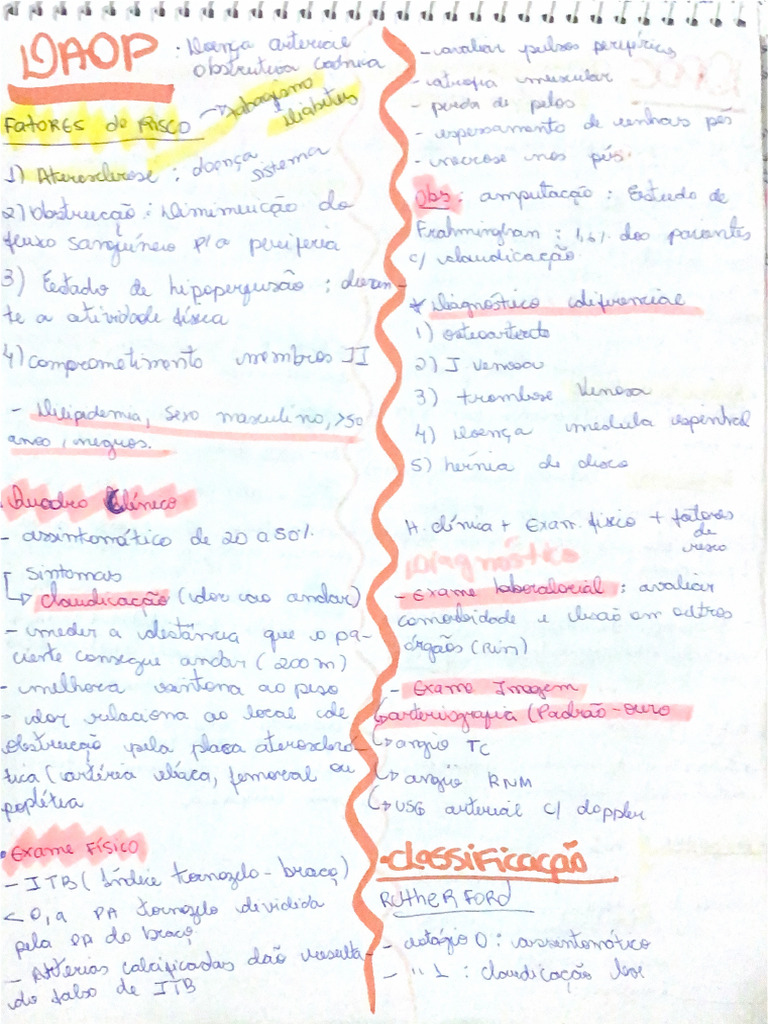 DAOP : Doença arterial
obstrutiva crônica
Fatores de Risco → tabagismo
diabetes
1) Aterosclerose : doença sistema
2) Obstrucção : Diminuição do
fluxo sanguíneo p/ a periferia
3) Estado de hipoperfusão : duran-
te a atividade física
4) comprometimento membros II
- Dilipidemia, sexo masculino, >50
anos, negros.
. Quadro Clínico
- assintomático de 20 a 50%
Sintomas
↳ claudicação (dor ao andar)
- medir a distância que o pa-
ciente consegue andar (200 m)
- melhora sintoma ao
- dor relaciona ao local de
obstrucção pela placa ateroscleró-
tica (artéria ilíaca, femoral ou
poplítea
. Exame Físico
- ITB (Índice tornozelo-braço)
< 0,9 PA tornozelo dividida
pela PA do braço
- Artérias calcificadas dão resulta-
do falso de ITB
- avaliar pulsos periféricos
- atrofia muscular
- perda de pelos
- espessamento de unhas pés
- necrose nos pés.
Obs : amputação : Estudo de
Frahminghan : 1,6% dos pacientes
c/ claudicação
* Diagnóstico diferencial
1)
2) I venosa
3) trombose Venosa
4) Doença medula espinhal
5) hérnia de disco
H. clínica + Exam. físico + fatores
de
risco
Diagnóstico
- Exame laboratorial : avaliar
comorbidade e lesão em outros
órgãos (Rim)
- Exame Imagem
↳ arteriografia (Padrão-ouro
↳ angio TC
↳ angio RNM
↳ USG arterial c/ doppler
.classificação
RUTHERFORD
- estágio 0 : assintomático
- " 1 : claudicação leve